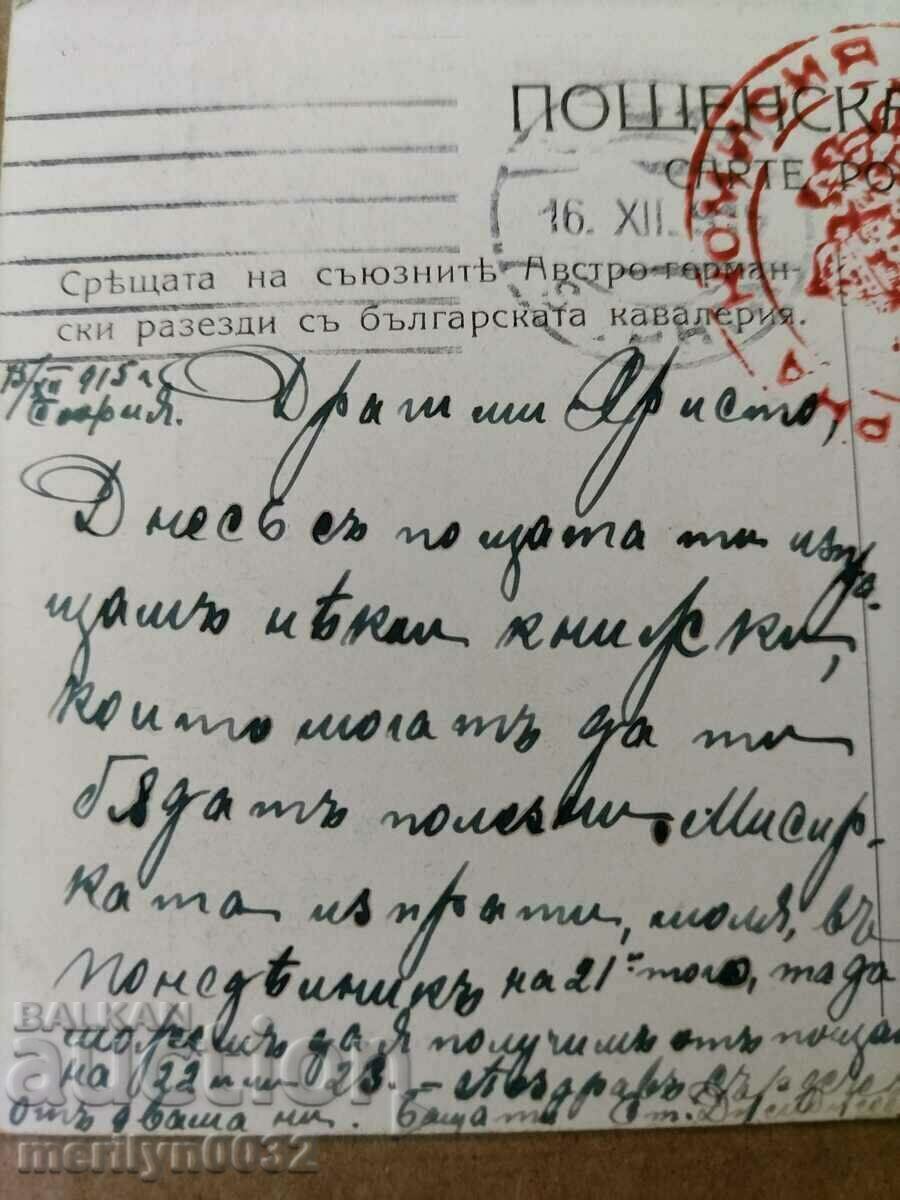 ПОЩЕНСКА
CARTE PO
16. XII.
Срѣщата на съюзнитѣ Австро-герман-
ски разезди съ българската кавалерия.
15/XII 915 г.
София.
Драги ми Христо,
Днесъ съ пощата ти изпра-
щамъ нѣкои книжки,
които могатъ да ти
бѫдатъ полезни. Мисир-
ката изпрати, моля, въ
понедѣлникъ на 21 того, та да
можемъ да я получимъ отъ поща
на 22 или 23. – Поздравъ сърдеченъ
отъ двама ни. Баща ти Ст.
BALKAN
auction
merilyn0032